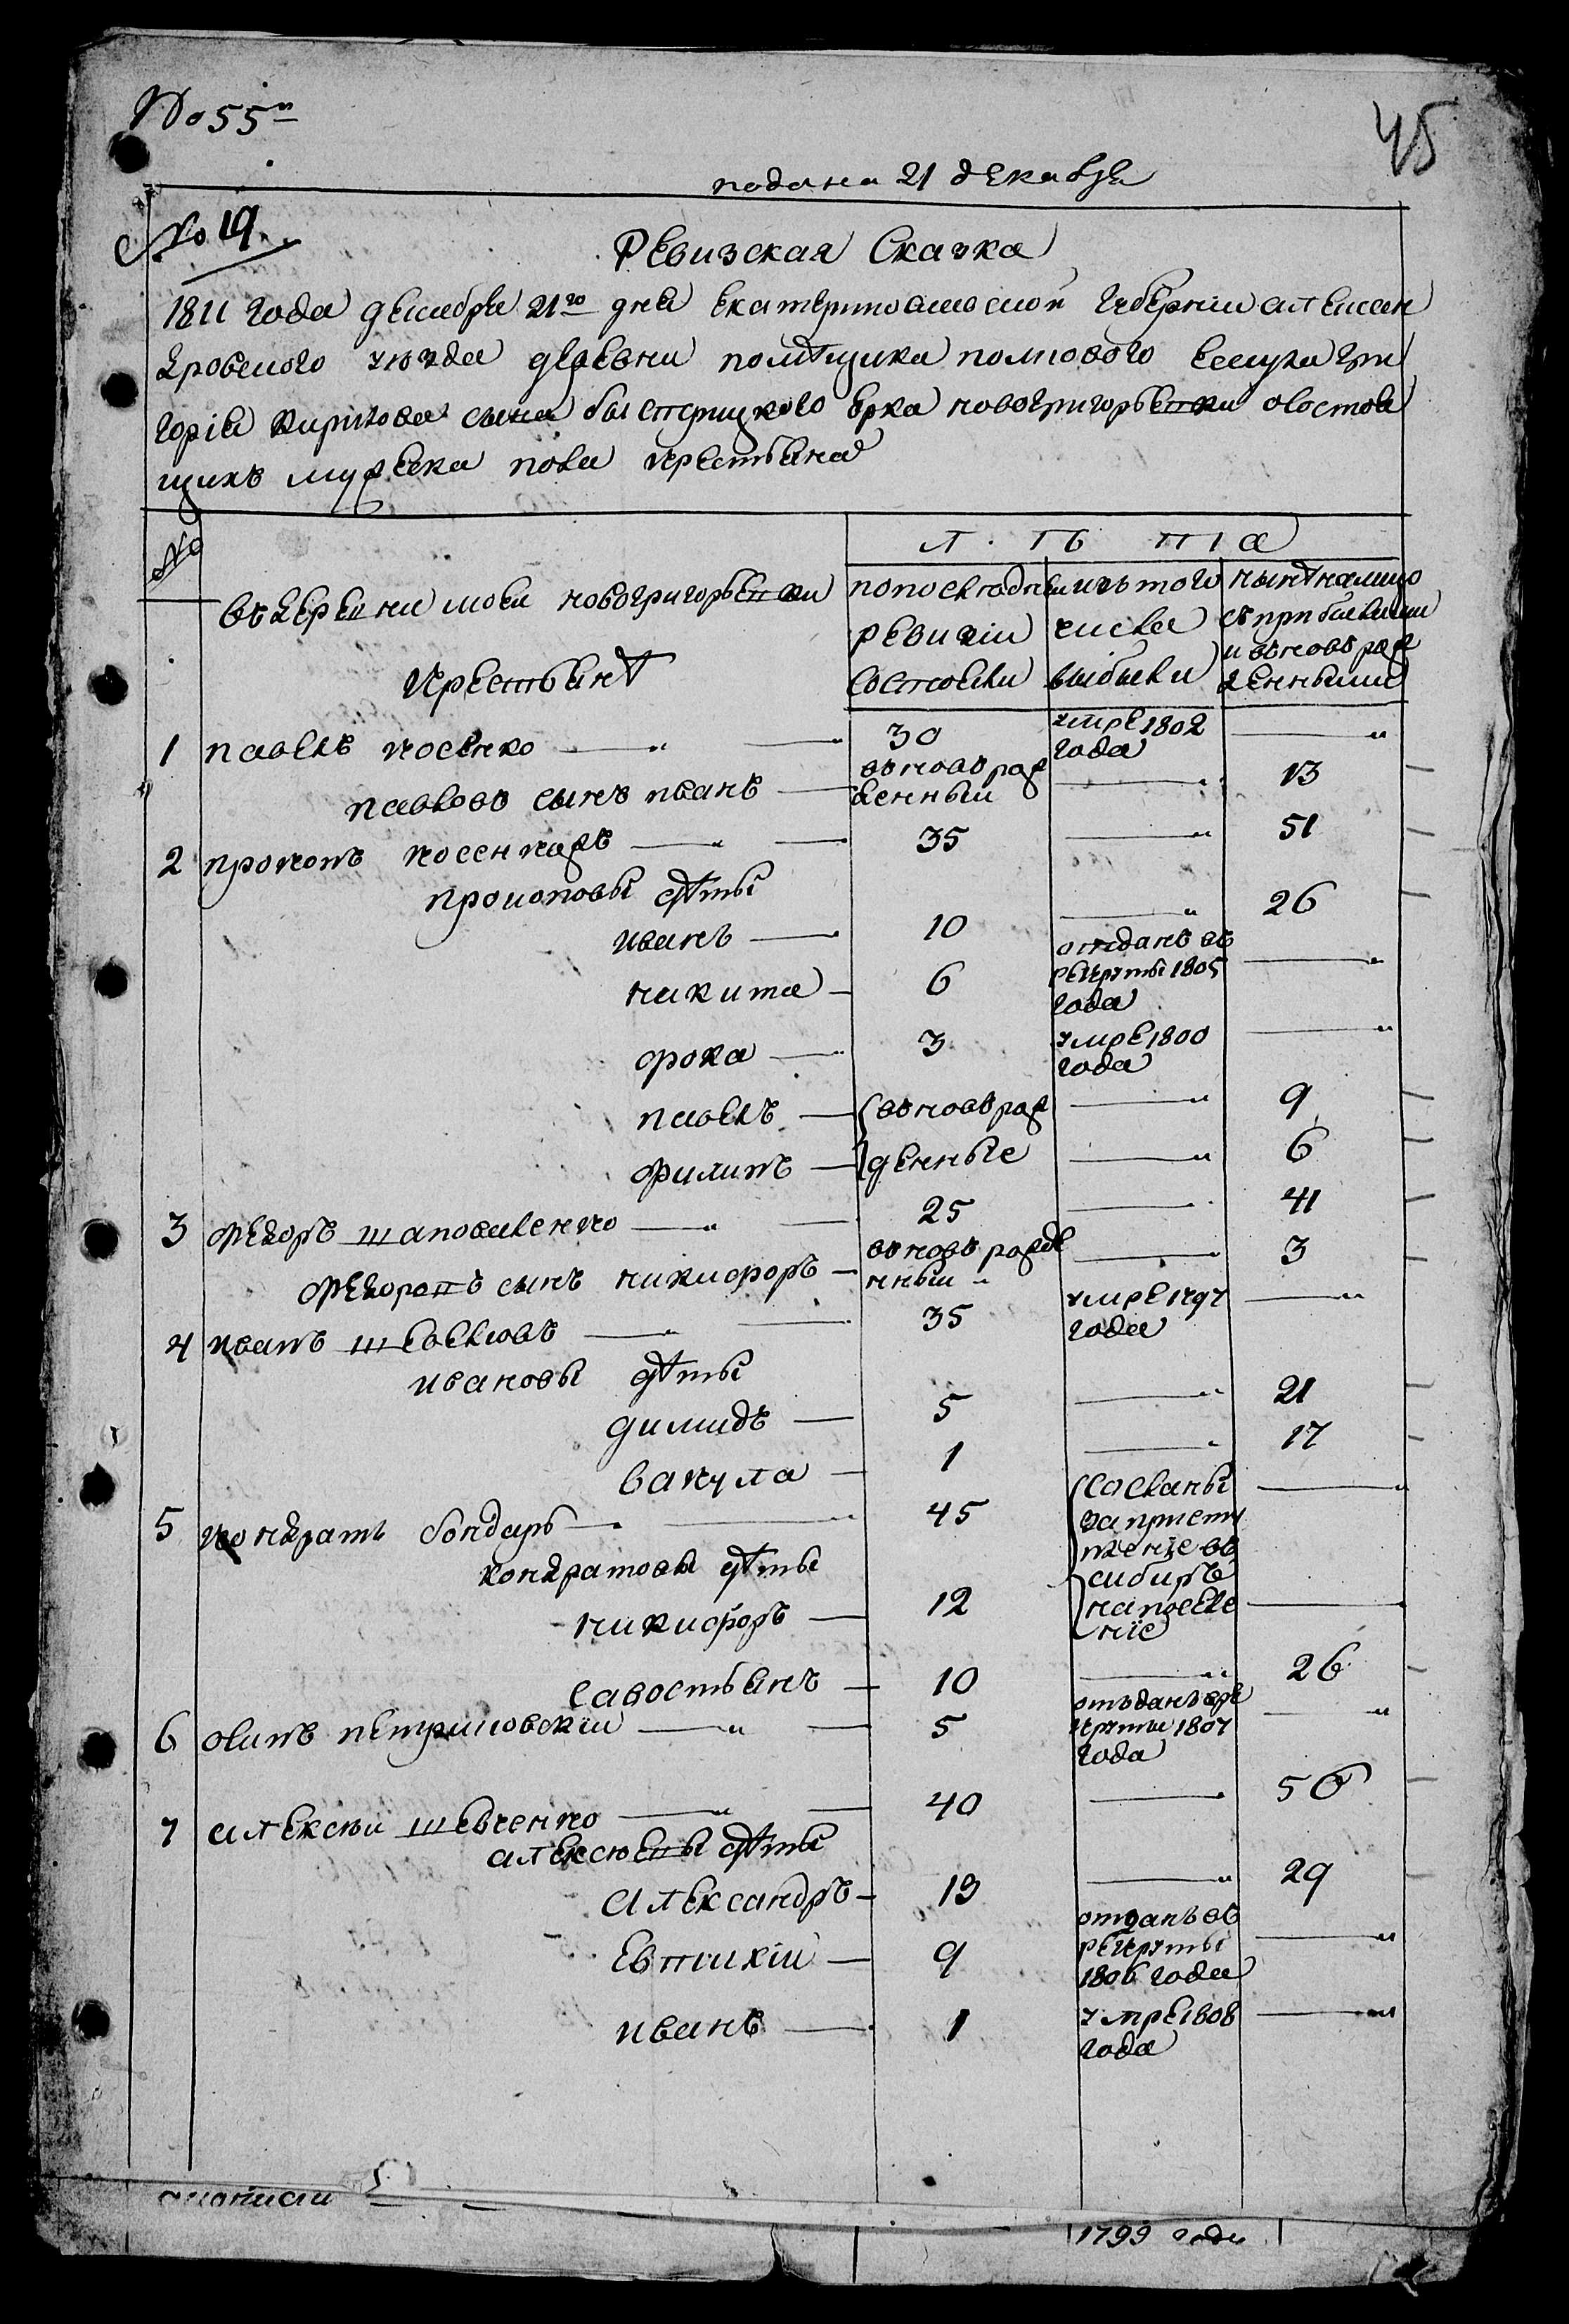 № 55й
45
подана 21 декабря
№ 19.
Ревизская Сказка
1811 года декабря 21го дня Екатеринославской губерніи алексан
дровского уѣзда деревни помѣщика полкового Есаула гри
горія Кирилова сына быстрицкого новогригорьевки о состоя
щихъ мужеска пола крестьяна
№
въ деревни моеи новогригорьевки
крестьянѣ
Л ѣ т а
по последнеи ревизіи состояли
изъ того числа выбыли
нынѣ налицо съ прибылыми и вновь рож денными
1 павелъ косенко 30 умре 1802 года —
павловъ сынъ иванъ вновь рож денныи — 13
2 прокопъ косенкожъ 35 — 51
прокоповы дѣти
иванъ 10 — 26
никита 6 отданъ въ рекруты 1805 года —
фока 3 умре 1800 года —
павелъ вновь рож — 9
филипъ денные — 6
3 федоръ шаповаленко 25 — 41
федоровъ сынъ никифоръ вновь рожде нныи — 3
4 иванъ 35 умре 1797 года —
ивановы дѣти
димидъ 5 — 21
вакула 1 — 17
5 кондратъ бондаръ 45 сосланы за приступ ленiе въ сибиръ на поселе нiе —
кондратовы дѣти
никифоръ 12 —
савостьянъ 10 — 26
6 осипъ петриковскiи 5 отъданъ в ре круты 1807 года —
7 алексѣи шевченко 40 — 56
алексѣевы дѣти
александръ 13 — 29
Евтихiи 9 отданъ въ рекруты 1806 года —
иванъ 1 умре 1808 года —
1799 года